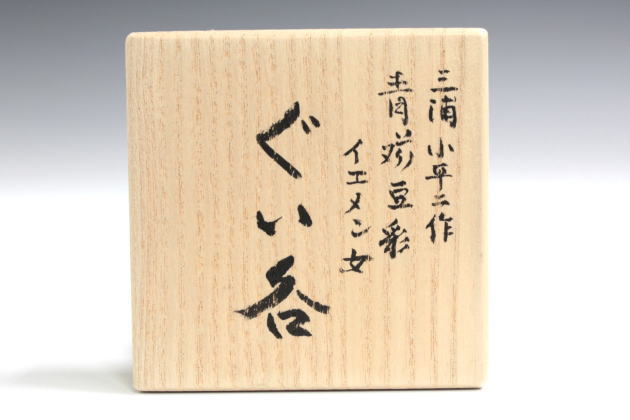 三浦小平二作
青瓷豆彩
イエメン女
ぐい呑